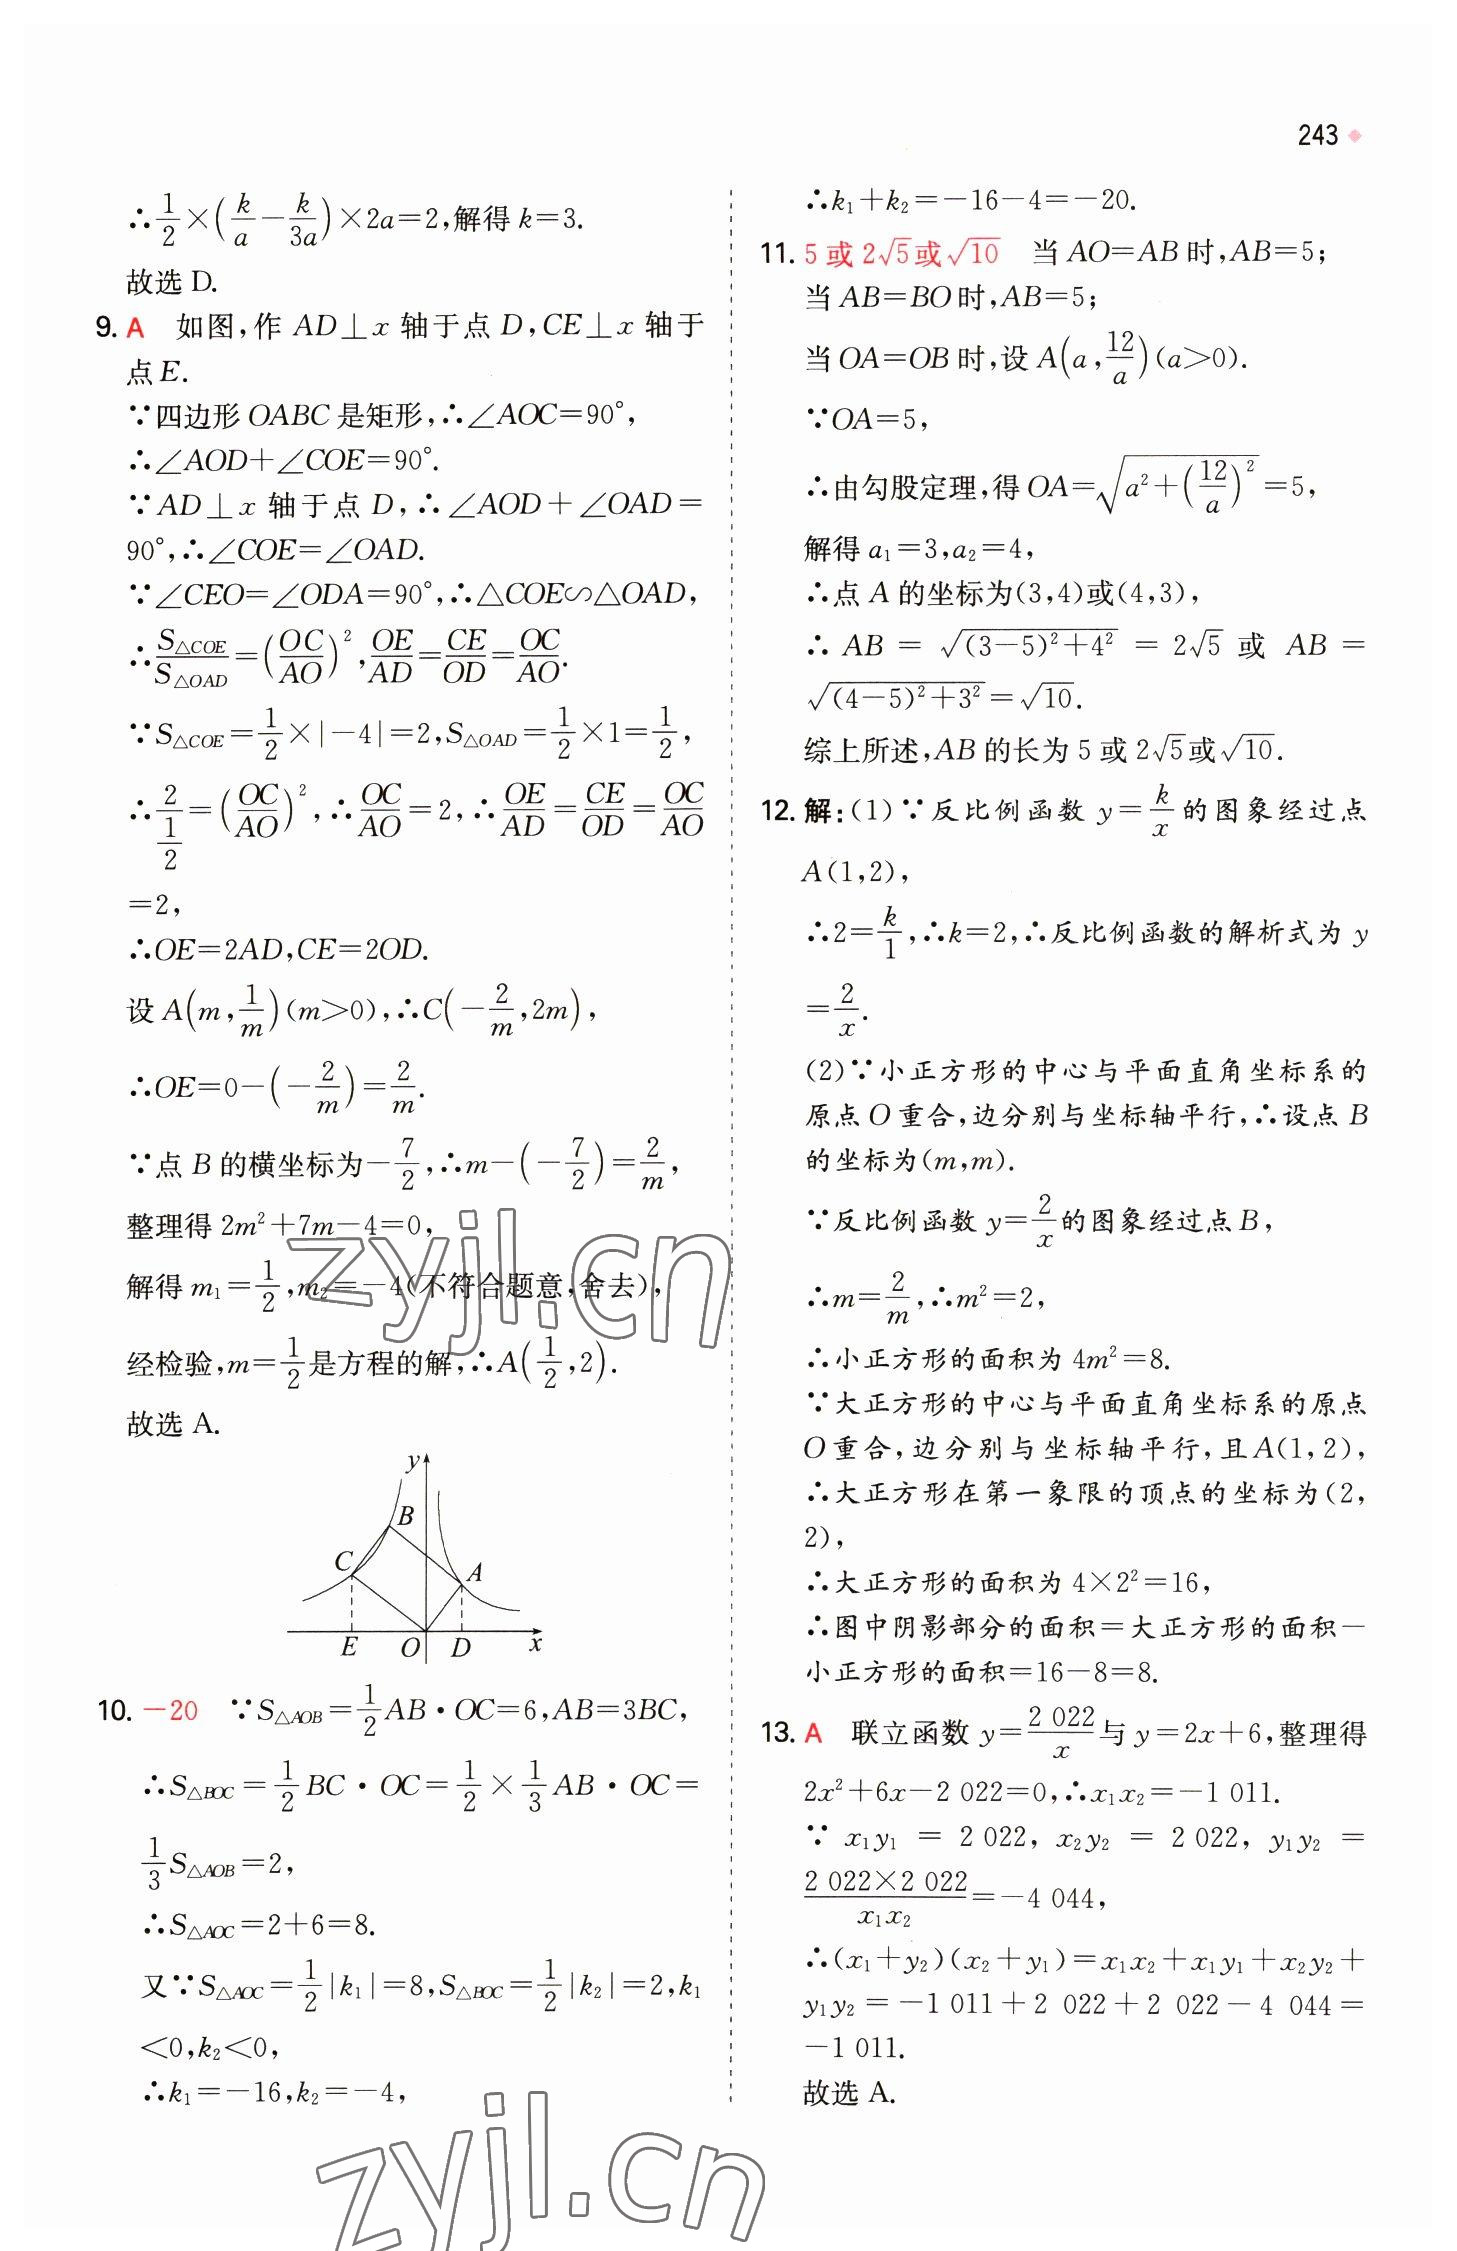 243
∴1/2×(k/a−k/3a)×2a=2,解得 k=3.
故选 D.
9. A 如图,作 AD⊥x 轴于点 D,CE⊥x 轴于
点 E.
∵四边形 OABC 是矩形,∴∠AOC=90°,
∴∠AOD+∠COE=90°.
∵AD⊥x 轴于点 D,∴∠AOD+∠OAD=
90°,∴∠COE=∠OAD.
∵∠CEO=∠ODA=90°,∴△COE∽△OAD,
∴S△COE/S△OAD=(OC/AO)²,OE/AD=CE/OD=OC/AO.
∵S△COE=1/2×|−4|=2,S△OAD=1/2×1=1/2,
∴2/(1/2)=(OC/AO)²,∴OC/AO=2,∴OE/AD=CE/OD=OC/AO
=2,
∴OE=2AD,CE=2OD.
设 A(m,1/m)(m>0),∴C(−2/m,2m),
∴OE=0−(−2/m)=2/m.
∵点 B 的横坐标为−7/2,∴m−(−7/2)=2/m,
整理得 2m²+7m−4=0,
解得 m₁=1/2,m₂=−4(不符合题意,舍去),
经检验,m=1/2是方程的解,∴A(1/2,2).
故选 A.
y
B
C
A
E O D x
10. −20 ∵S△AOB=1/2AB·OC=6,AB=3BC,
∴S△BOC=1/2BC·OC=1/2×1/3AB·OC=
1/3S△AOB=2,
∴S△AOC=2+6=8.
又∵S△AOC=1/2|k₁|=8,S△BOC=1/2|k₂|=2,k₁
<0,k₂<0,
∴k₁=−16,k₂=−4,
∴k₁+k₂=−16−4=−20.
11. 5 或 2√5或√10 当 AO=AB 时,AB=5;
当 AB=BO 时,AB=5;
当 OA=OB 时,设 A(a,12/a)(a>0).
∵OA=5,
∴由勾股定理,得 OA=√(a²+(12/a)²)=5,
解得 a₁=3,a₂=4,
∴点 A 的坐标为(3,4)或(4,3),
∴ AB = √((3−5)²+4²) = 2√5 或 AB =
√((4−5)²+3²)=√10.
综上所述,AB 的长为 5 或 2√5或√10.
12. 解:(1)∵反比例函数 y=k/x 的图象经过点
A(1,2),
∴2=k/1,∴k=2,∴反比例函数的解析式为 y
=2/x.
(2)∵小正方形的中心与平面直角坐标系的
原点 O 重合,边分别与坐标轴平行,∴设点 B
的坐标为(m,m).
∵反比例函数 y=2/x的图象经过点 B,
∴m=2/m,∴m²=2,
∴小正方形的面积为 4m²=8.
∵大正方形的中心与平面直角坐标系的原点
O 重合,边分别与坐标轴平行,且A(1,2),
∴大正方形在第一象限的顶点的坐标为(2,
2),
∴大正方形的面积为 4×2²=16,
∴图中阴影部分的面积=大正方形的面积−
小正方形的面积=16−8=8.
13. A 联立函数 y=2 022/x与 y=2x+6,整理得
2x²+6x−2 022=0,∴x₁x₂=−1 011.
∵ x₁y₁ = 2 022, x₂y₂ = 2 022, y₁y₂ =
2 022×2 022/x₁x₂=−4 044,
∴(x₁+y₂)(x₂+y₁)=x₁x₂+x₁y₁+x₂y₂+
y₁y₂=−1 011+2 022+2 022−4 044=
−1 011.
故选 A.
zyjl.cn
zyjl.cn